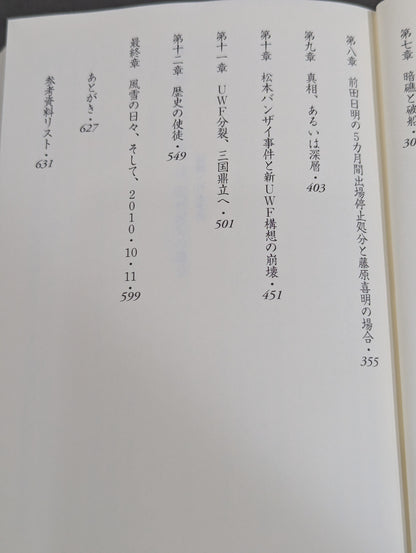 第七章 暗礁と破船・30
第八章 前田日明の5カ月間出場停止処分と藤原喜明の場合・355
第九章 真相、あるいは深層・403
第十章 松本バンザイ事件と新UWF構想の崩壊・451
第十一章 UWF分裂、三国鼎立へ・501
第十二章 歴史の使徒・549
最終章 風雪の日々、そして、2010・10・11・599
あとがき・627
参考資料リスト・631